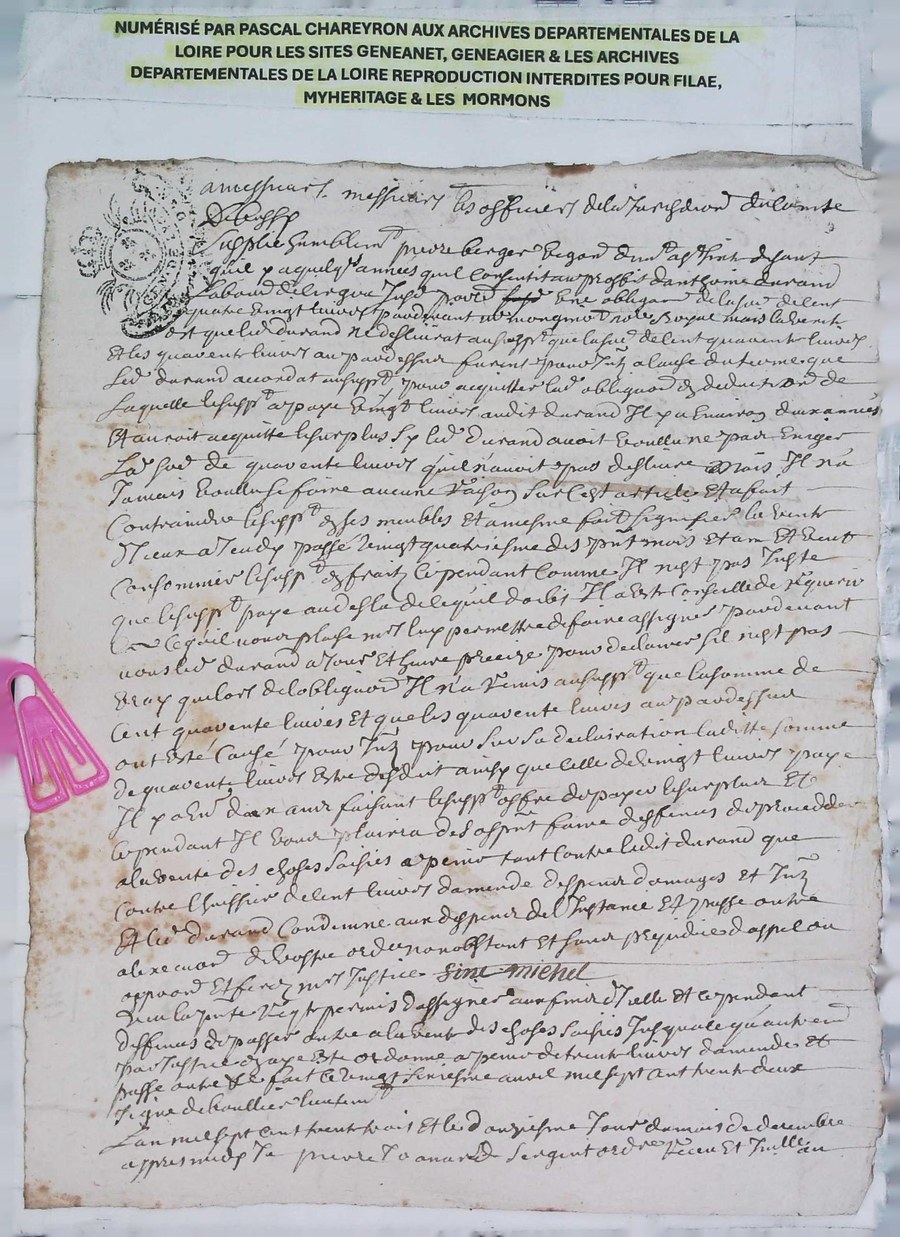 NUMÉRISÉ PAR PASCAL CHAREYRON AUX ARCHIVES DEPARTEMENTALES DE LA
LOIRE POUR LES SITES GENEANET, GENEAGIER & LES ARCHIVES
DEPARTEMENTALES DE LA LOIRE REPRODUCTION INTERDITES POUR FILAE,
MYHERITAGE & LES MORMONS
a messieurs messieurs les officiers de la
supplie humblemt pierre berger disant
quil y a quelqs années quil consentit au proffit danthoine durand
une obligaon de la soe de cent
quatre vingt livres pardevant me no re mais la verité
est que led durand ne deslivrat au suppt que la soe de cent quarente livres
Et les quarente livres au pardessus furent pour a cause du terme que
led durand accordat au suppt pour acquitter lad obligaon en deduction de
laquelle le suppt a paye vingt livres audit durand Il y a environ deux années
Et auroit acquitte le surplus sy led durand avoit voullu ne pas exiger
la soe de quarente livres quil n'avoit pas deslivré mais Il n'a
Jamais voullu se faire aucune raison sur cest article Et a fait
contraindre le suppt en ses meubles Et a mesme fait signifier la vente
d'Iceux a Jeudy passé vingt quatriesme des pnt mois et an Et veut
consommer le suppt en fraits cependant comme Il nest pas Juste
que le suppt paye au desla de ce quil doibt Il a esté conseillé de requerir
Ce quil vous plaise mrs luy permettre de faire assigner pardevant
vous led durand a Jour Et heure precize pour declarer sil nest pas
vray que lors de lobligaon Il n'a remis au suppt que la somme de
cent quarente livres Et que les quarente livres au pardessus
ont esté causé pour pour sur sa declairation laditte somme
de quarente livres estre desduit ainsy que celle de vingt livres payé
Il y a deux ans faisant le suppt offre de payer le surplus Et
cependant Il vous plaira des a pnt faire deffences de proceder
a la vente des choses saisies a peine tant contre ledit durand que
contre l'huissier de cent livres damende despens domages et
Et led durand condemné aux despens de l'Instance Et passé outre
a lexecuon de vostre ordce nonobstant Et sans prejudice dappel ou
opposon Et ferez mrs Justice sine michel
Veu la pnte reqte permis dassigner aux fins d'Icelle Et cependant
deffences de passer outre a la vente des choses saisies Jusqua ce quautrement
par Justice en aye esté ordonné a peine de trente livres damende et
passé outre fait ce vingt seniesme avril mil sept cent trente deux
signe deboullier
L'an mil sept cent trente trois Et le douziesme Jour du mois de decembre
apprès midy Je pierre sergent ordre receu Et Juillé au